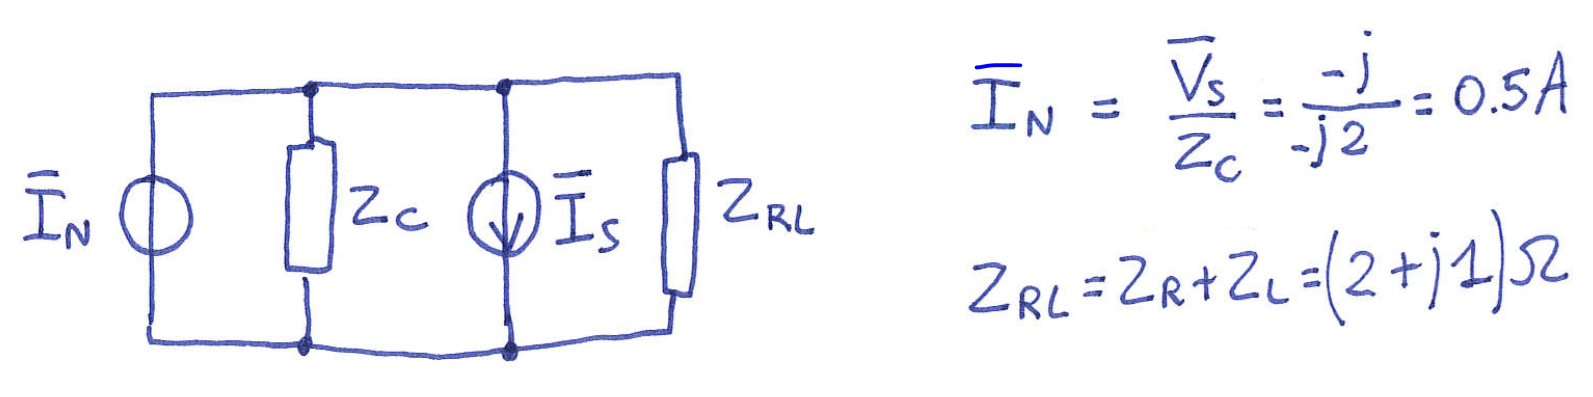 I̅_N Z_C I̅_S Z_RL
I̅_N = V̅_S / Z_C = -j / -j2 = 0.5A
Z_RL = Z_R + Z_L = (2 + j1)Ω